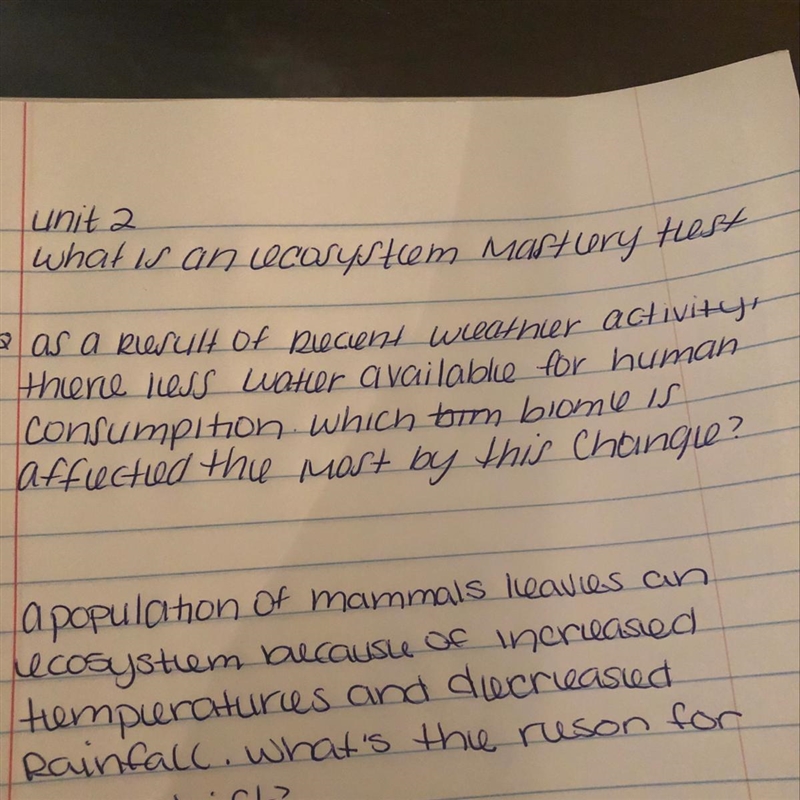 unit 2
What is an ecosystem Mastery test
as a result of recent weather activity,
there less water available for human
consumption. which biome is
affected the most by this change?
a population of mammals leaves an
ecosystem because of increased
temperatures and decreased
Rainfall. What's the reson for